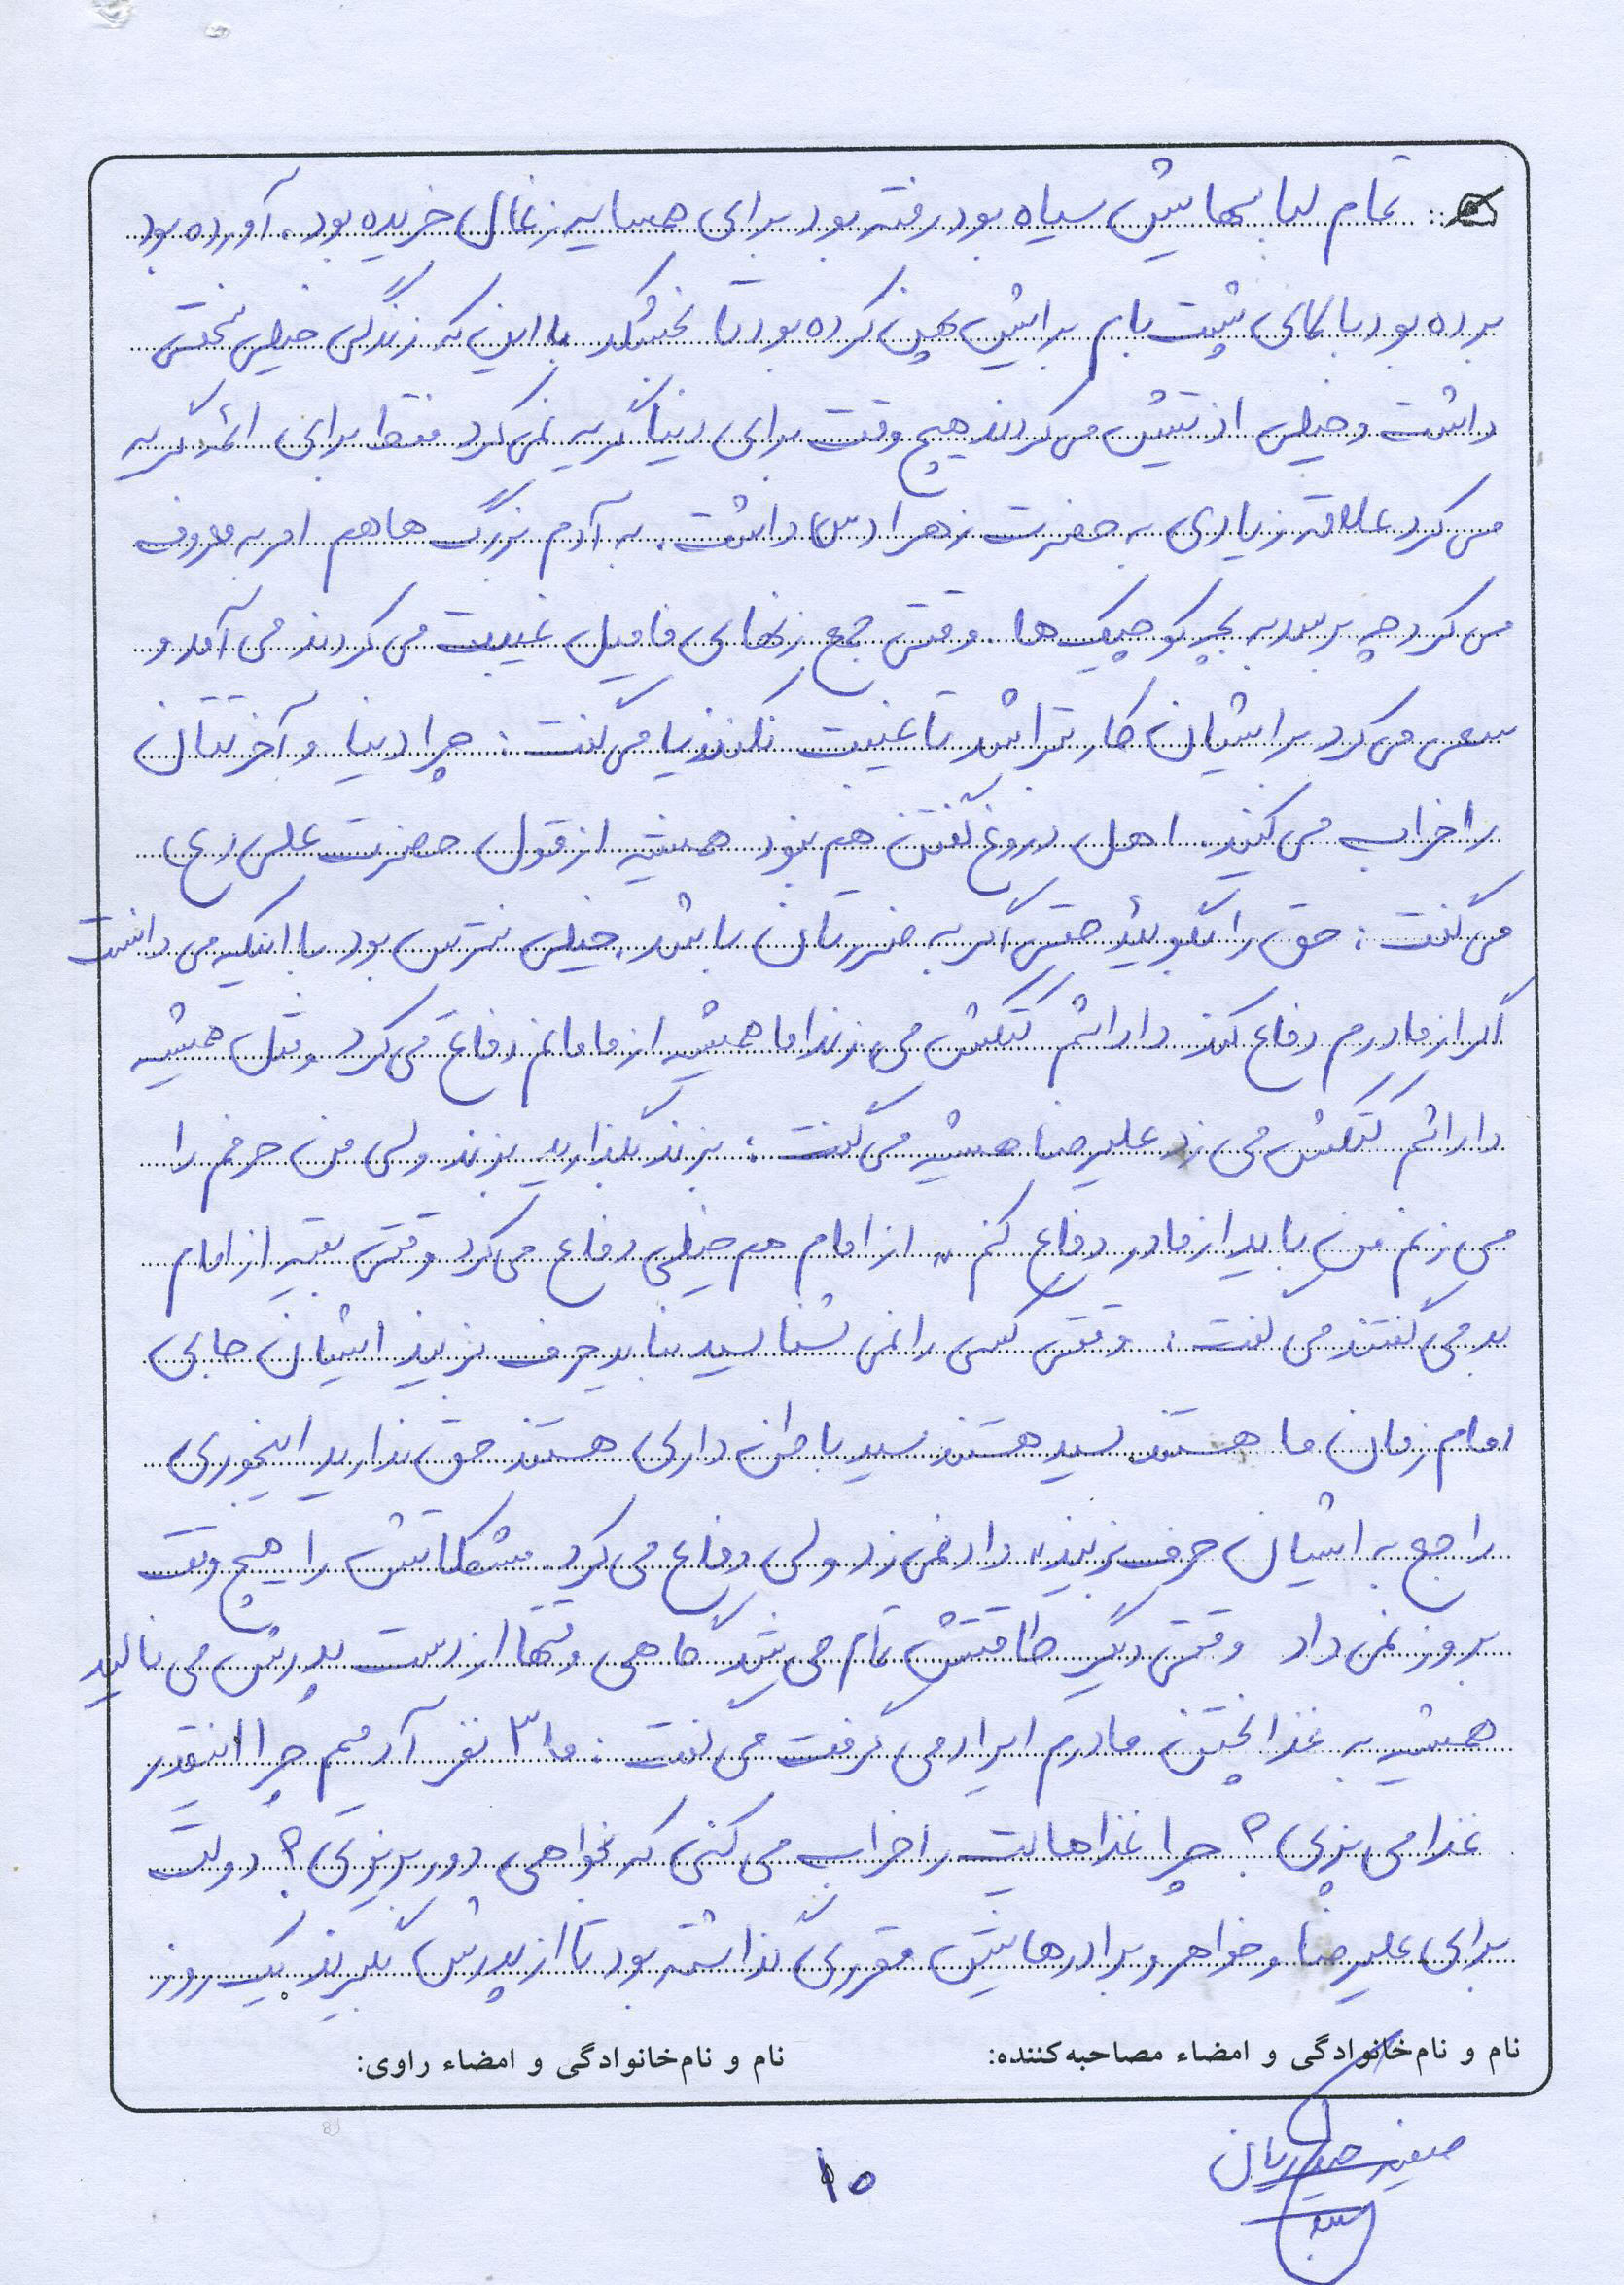 تمام لباسهایش سیاه بود رفته بود برای همسایه زغال خریده بود، آورده بود
برده بود بالای پشت بام برایش پهن کرده بود تا بخشکد با این که زندگی خیلی سختی
داشت و خیلی اذیتش می کردند هیچ وقت برای دنیا گریه نمی کرد فقط برای ائمه گریه
می کرد علاقه زیادی به حضرت زهرا (س) داشت. به آدم بزرگ ها هم امر به معروف
می کرد چه برسد به بچه کوچیک ها. وقتی جمع زنهای فامیل غیبت می کردند می آمد و
سعی می کرد برایشان کار بتراشد تا غیبت نکنند یا می گفت: چرا دنیا و آخرتتان
را خراب می کنید. اهل دروغ گفتن هم نبود همیشه از قول حضرت علی (ع)
می گفت: حق را بگویید حتی اگر به ضررتان باشد. خیلی نترس بود با اینکه می دانست
اگر از مادرم دفاع کند داداشم کتکش می زند اما همیشه از مامانم دفاع می کرد مثل همیشه
داداشم کتکش می زد علیرضا همیشه می گفت: بزند بگذارید بزند ولی من حرفم را
می زنم من باید از مادر دفاع کنم» از امام هم خیلی دفاع می کرد وقتی بقیه از امام
بد می گفتند می گفت: وقتی کسی را نمی شناسید نباید حرف بزنید ایشان جای
امام زمان ما هستند سید هستند سید باطن داری هستند حق ندارید اینجوری
راجع به ایشان حرف بزنید» داد نمی زد ولی دفاع می کرد. مشکلاتش را هیچ وقت
بروز نمی داد وقتی دیگر طاقتش تمام می شد گاهی وقتها از دست پدرش می نالید
همیشه به غذا پختن مادرم ایراد می گرفت می گفت: ما ۳ نفر آدمیم چرا اینقدر
غذا می پزی؟ چرا غذاهایت را خراب می کنی که بخواهی دور بریزی؟ دولت
برای علیرضا و خواهر و برادرهایش مقرری گذاشته بود تا از پدرش بگیرند یک روز
نام و نام‌خانوادگی و امضاء مصاحبه‌کننده: نام و نام‌خانوادگی و امضاء راوی:
حیدریان
۱۵